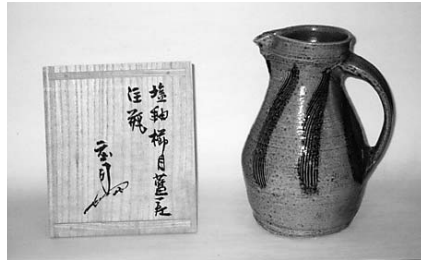 塩釉櫛目藍差
注瓶
庄司